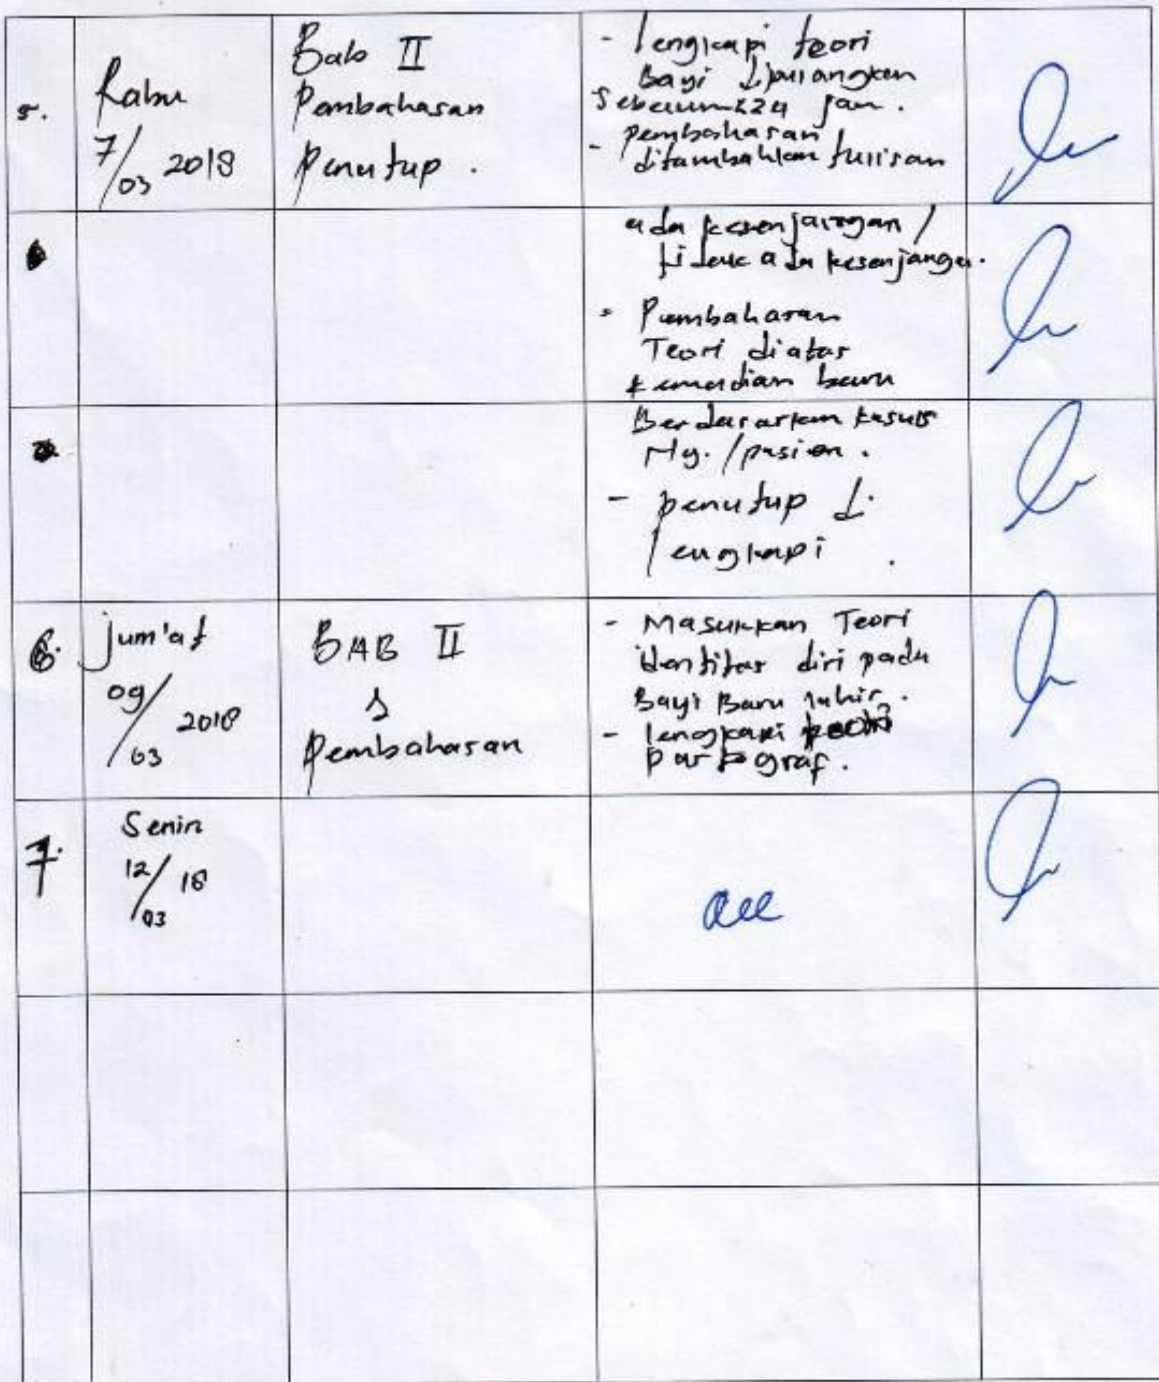 5.
Rabu
7/03 2018
Bab II
Pembahasan
Penutup.
- lengkapi teori
Bayi dipulangkan
Sebelum 24 jam.
- pembahasan
ditambahkan tulisan
ada kesenjangan /
tidak ada kesenjangan.
- Pembahasan
Teori diatas
kemudian baru
Berdasarkan kasus
Ny. / pasien.
- penutup di
lengkapi.
6.
Jum'at
09/03 2018
BAB II
&
Pembahasan
- Masukkan Teori
identitas diri pada
Bayi Baru lahir.
- lengkapi
partograf.
7.
Senin
12/03 18
acc